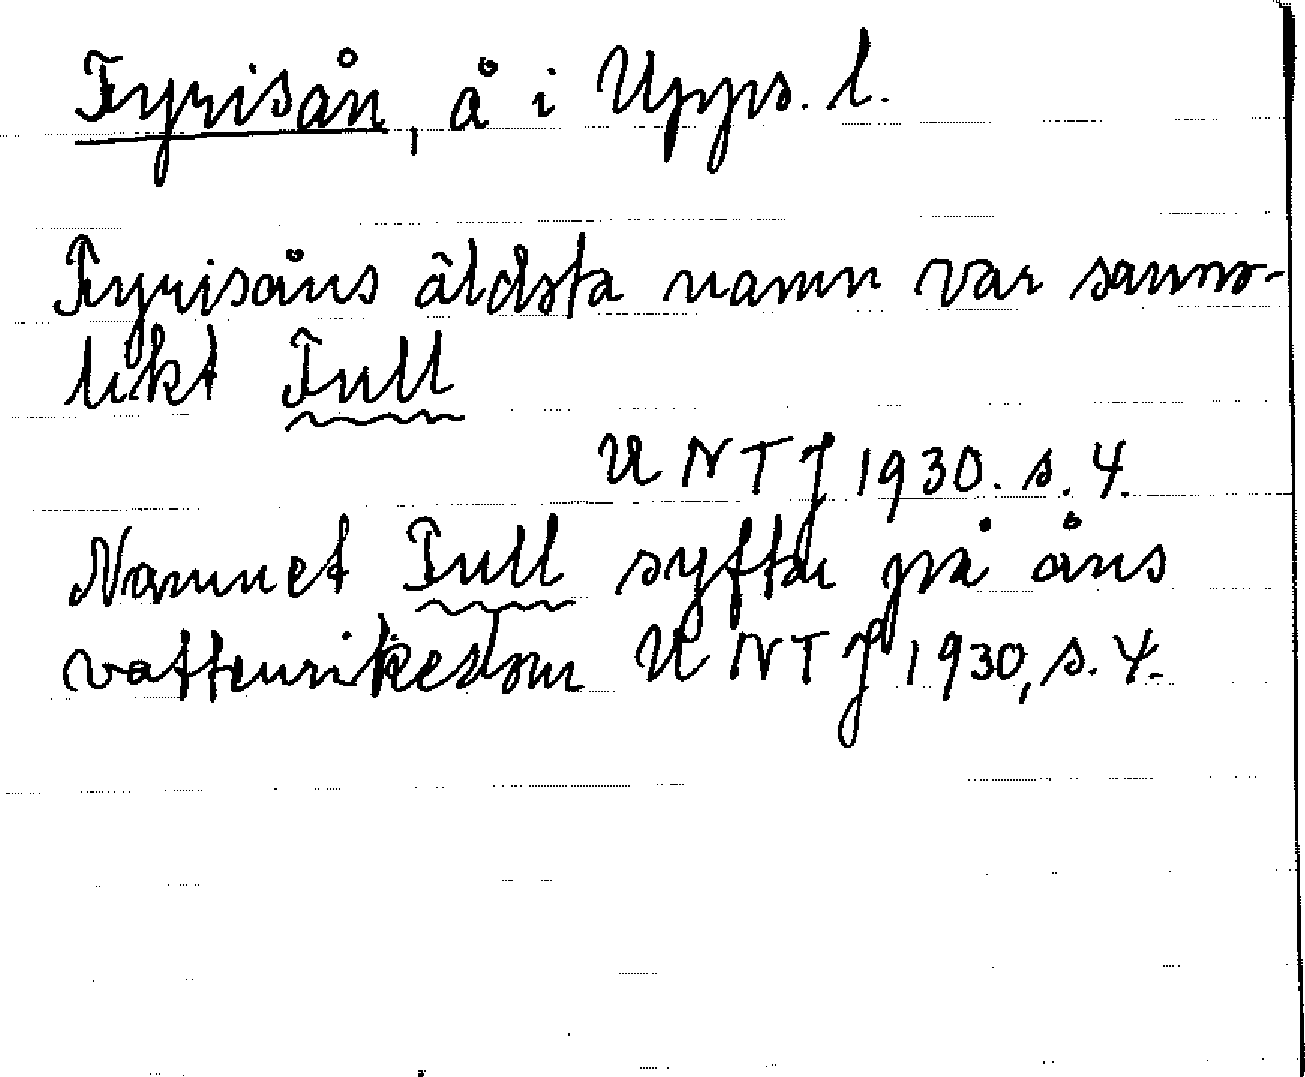 Fyrisån, å i Upps. l.
Fyrisåns äldsta namn var sanno-
likt Full
UNTJ 1930. s. 4.
Namnet Full syftar på åns
vattenrikedom UNTJ 1930, s. 4.